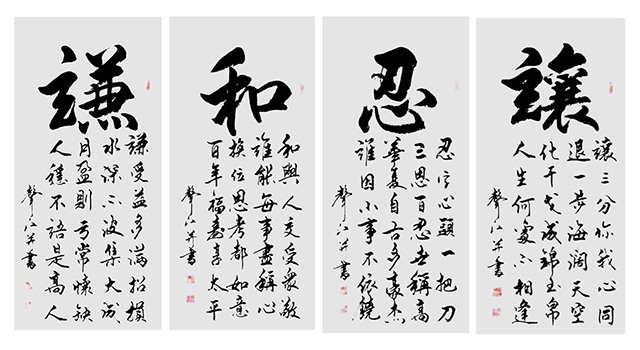 謙
謙受益多滿招損
水深不波集大成
月盈則亏常懷缺
人穩不語是高人
聲江并書
和
和與人交受眾敬
誰能每事盡稱心
換位思考都如意
百年福壽享太平
聲江并書
忍
忍字心頭一把刀
三思百忍世稱高
華夏自古多豪杰
誰因小事不依饒
聲江并書
讓
讓三分你我心同
退一步海闊天空
化干戈成錦玉帛
人生何處不相逢
聲江并書